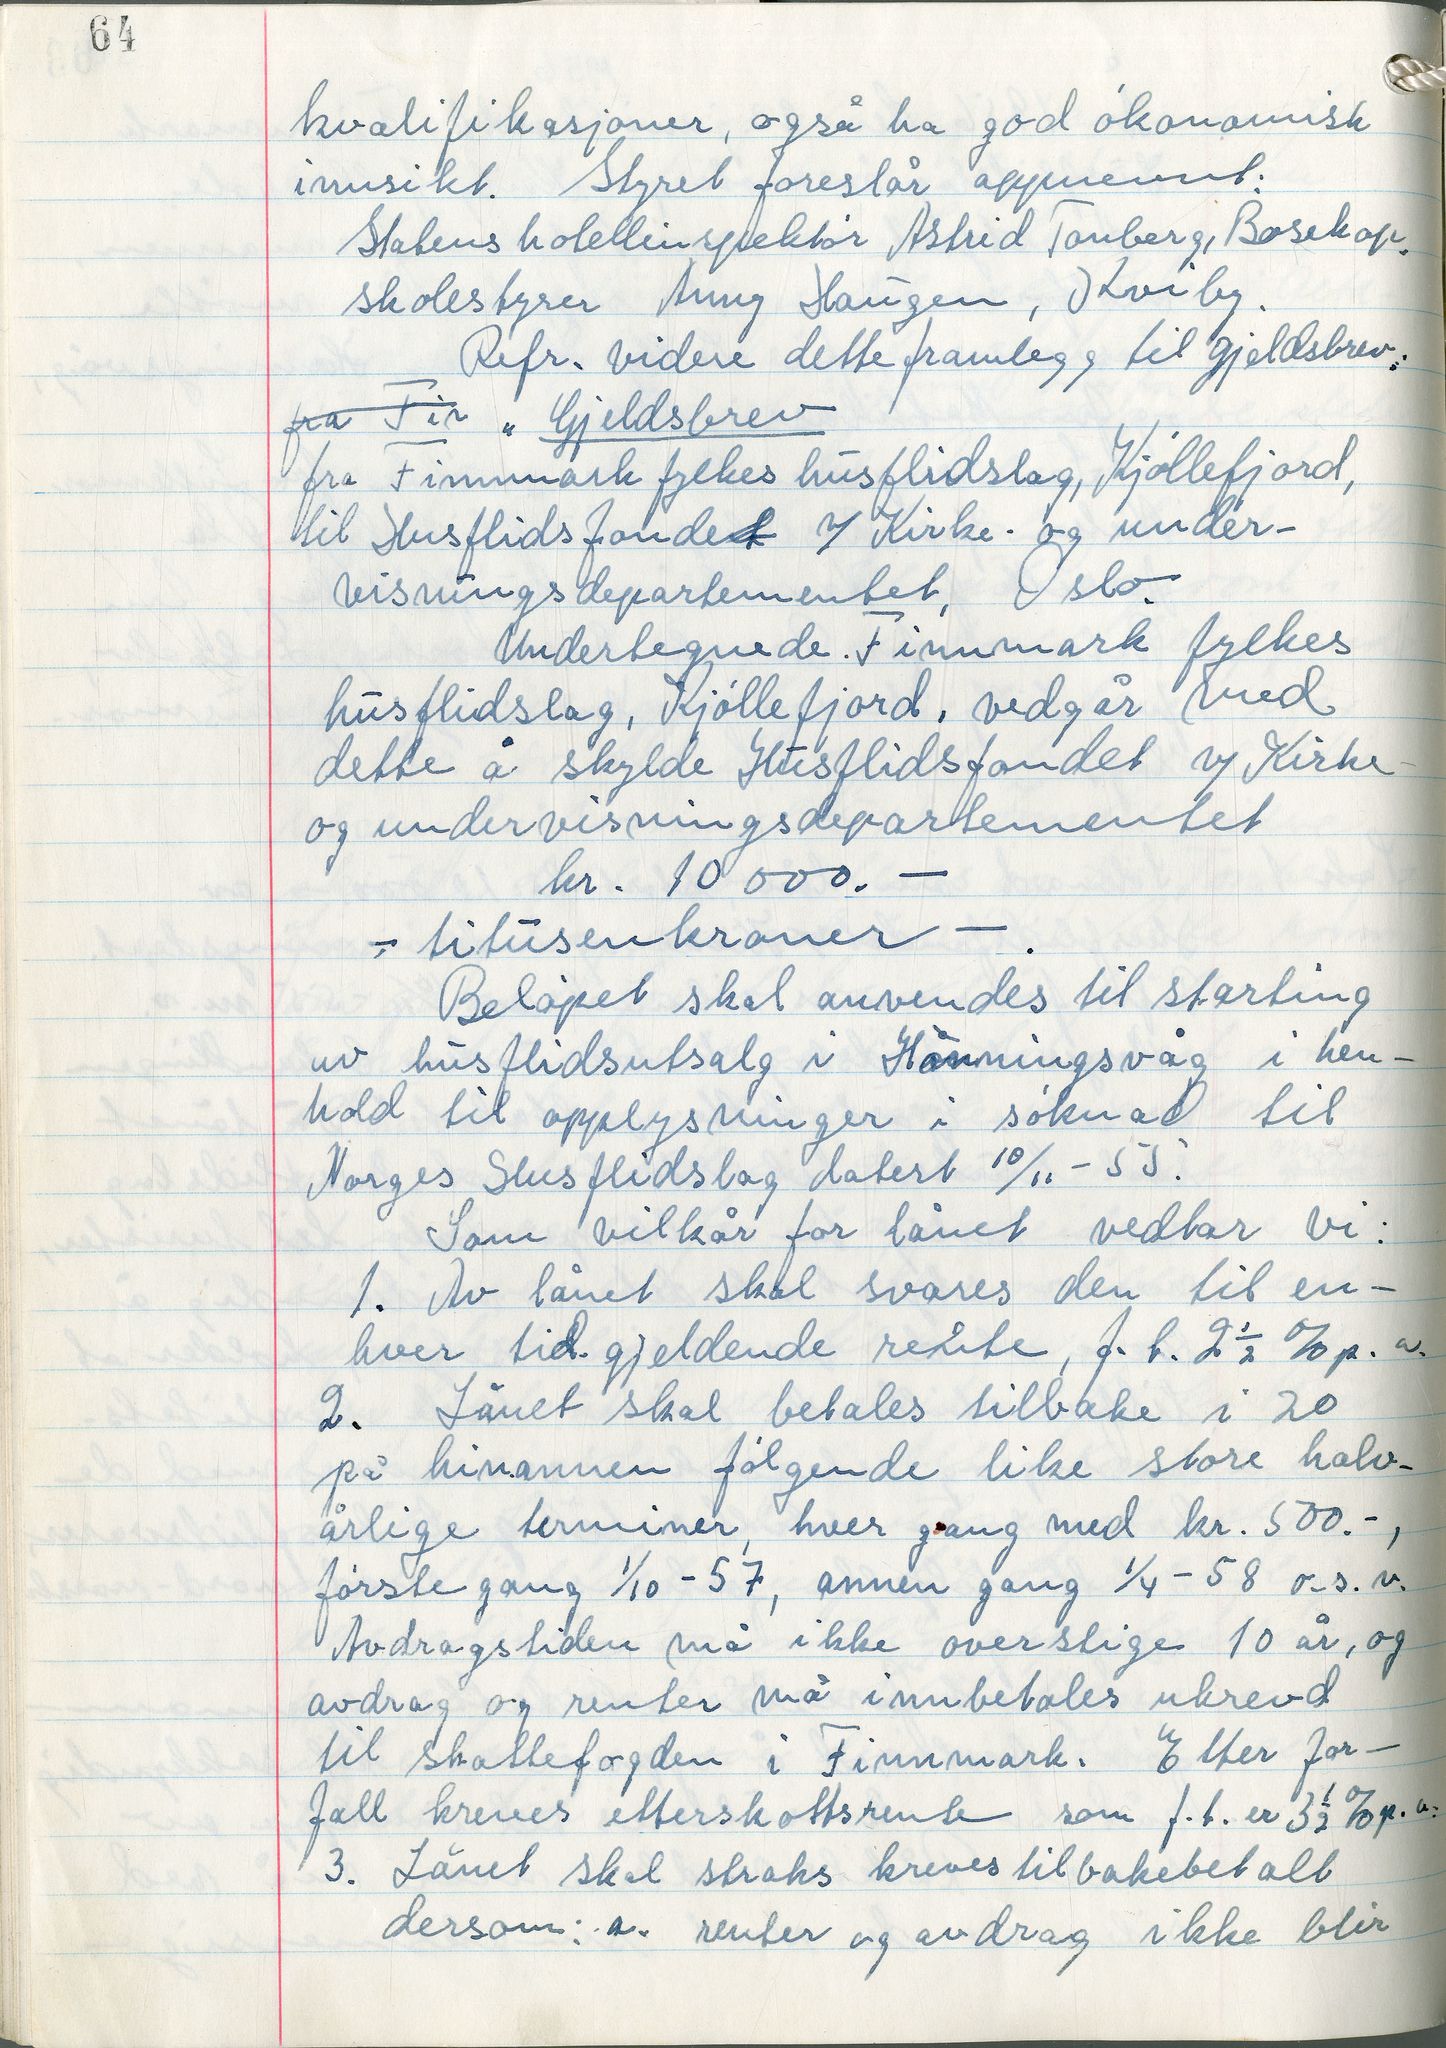 64
kvalifikasjoner, også ha god økonomisk
innsikt. Styret foreslår oppnevnt:
Statens hotellinspektør Astrid Tonberg, Bosekop.
skolestyrer Anny Haugen, Kviby.
Refr. videre dette framlegg til gjeldsbrev:
fra Fin „ Gjeldsbrev
fra Finnmark fylkes husflidslag, Kjøllefjord,
til Husflidsfondet v/ Kirke- og under-
visningsdepartementet, Oslo.
Undertegnede Finnmark fylkes
husflidslag, Kjøllefjord, vedgår med
dette å skylde Husflidsfondet v/ Kirke-
og undervisningsdepartementet
kr. 10 000.-
- titusenkroner -.
Beløpet skal anvendes til starting
av husflidsutsalg i Honningsvåg i hen-
hold til opplysninger i søknad til
Norges Husflidslag datert 10/11-55.
Som vilkår for lånet vedtar vi:
1. Av lånet skal svares den til en-
hver tid gjeldende rente, f.t. 2½ % p.a.
2. Lånet skal betales tilbake i 20
på hinannen følgende like store halv-
årlige terminer, hver gang med kr. 500.-,
første gang 1/10-57, annen gang 1/4-58 o.s.v.
Avdragstiden må ikke overstige 10 år, og
avdrag og renter må innbetales ukrevd
til skattefogden i Finnmark. Etter for-
fall kreves etterskottsrente som f.t. er 3½ % p.a.
3. Lånet skal straks kreves tilbakebetalt
dersom: a. renter og avdrag ikke blir